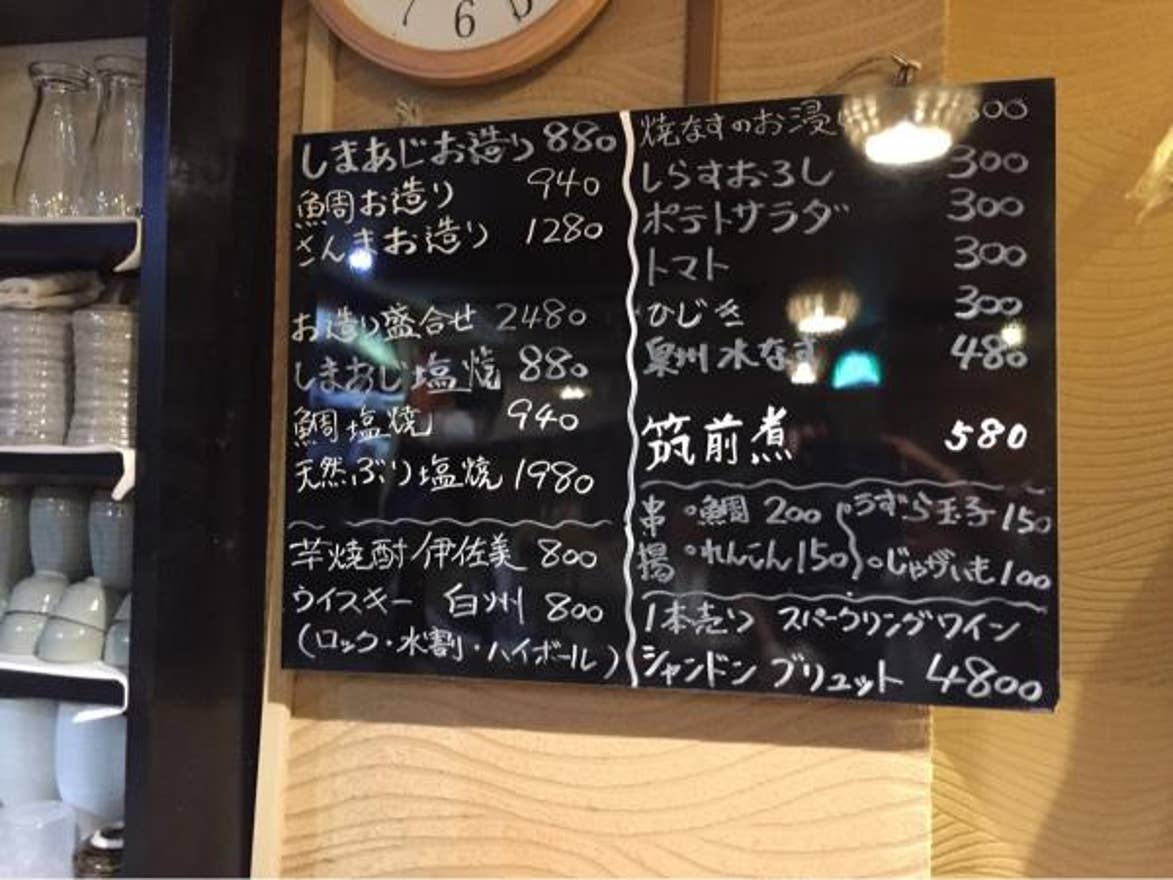 7 6 5
しまあじお造り 880
鯛お造り 940
さんまお造り 1280
お造り盛合せ 2480
しまあじ塩焼 880
鯛塩焼 940
天然ぶり塩焼 1980
芋焼酎/伊佐美 800
ウイスキー 白州 800
(ロック・水割・ハイボール)
焼なすのお浸し 300
しらすおろし 300
ポテトサラダ 300
トマト 300
ひじき 300
泉州水なす 480
筑前煮 580
串揚 ○鯛 200 ○うずら玉子 150
○れんこん 150 ○じゃがいも 100
1本売り スパークリングワイン
シャンドン ブリュット 4800